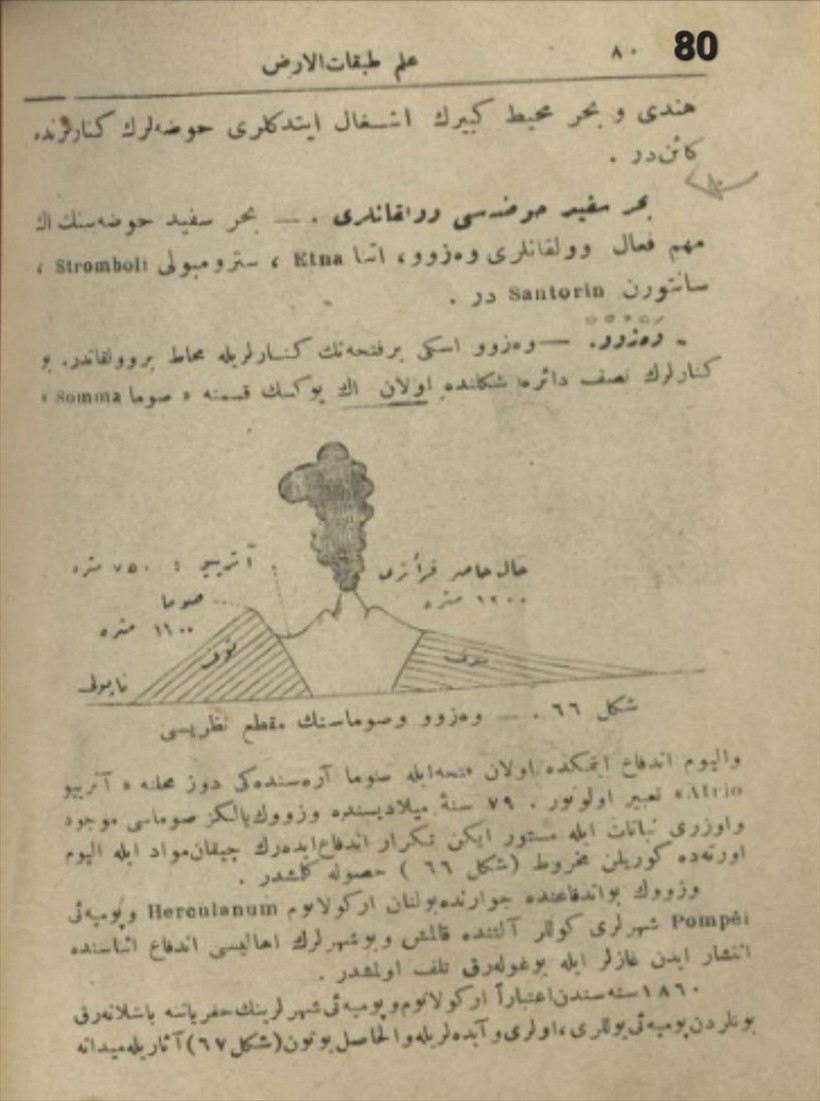 80
علم طبقات‌الارض ٨٠
هندی و بحر محیط کبیرك اشغال ایتدکلری حوضه‌لرك کنارلرنده
کائن‌در .
بحر سفید حوضه‌سی وولقانلری . — بحر سفید حوضه‌سنك اك
مهم فعال وولقانلری وه‌زوو، اتنا Etna ، سترومبولی Stromboli ،
سانتورن Santorin در .
ـ وه‌زوو. — وه‌زوو اسکی برفتحه‌نك کنارلریله محاط بروولقاندر. بو
کنارلرك نصف دائره شکلنده اولان اك یوکسك قسمنه « صوما Somma »
حال حاضر قرأتری
١٢٠٠ متره
آتریو : ٧٥٠ متره
صوما
١١٠٠ متره
توف
توف
ناپولی
شکل ٦٦ . — وه‌زوو وصوماسنك مقطع نظریسی
والیوم اندفاع ایتمکده اولان فتحه‌ایله صوما آره‌سنده‌کی دوز محلنه « آتریو
Atrio» تعبیر اولونور . ٧٩ سنهٔ میلادیسنده وزووك‌یالکز صوماسی موجود
واوزری نباتات ایله مستور ایکن تکرار اندفاع‌ایده‌رك چیقان‌مواد ایله الیوم
اورته‌ده کوریلن مخروط (شکل ٦٦ ) حصوله کلمشدر .
وزووك بواندفاعنده جوارنده‌بولنان ارکولانوم Herculanum وپومپه‌ئی
Pompêi شهرلری کوللر آلتنده قالمش وبوشهرلرك اهالیسی اندفاع اثناسنده
انتشار ایدن غازلر ایله بوغوله‌رق تلف اولمشدر .
١٨٦٠سنه‌سندن‌اعتباراً ارکولانوم‌وپومپه‌ئی‌شهرلرینك‌حفریاتنه باشلانه‌رق
بونلردن‌پومپه‌ئی‌یوللری،اولری‌وآبده‌لریله‌والحاصل‌بوتون(شکل٦٧)آثاریله‌میدانه